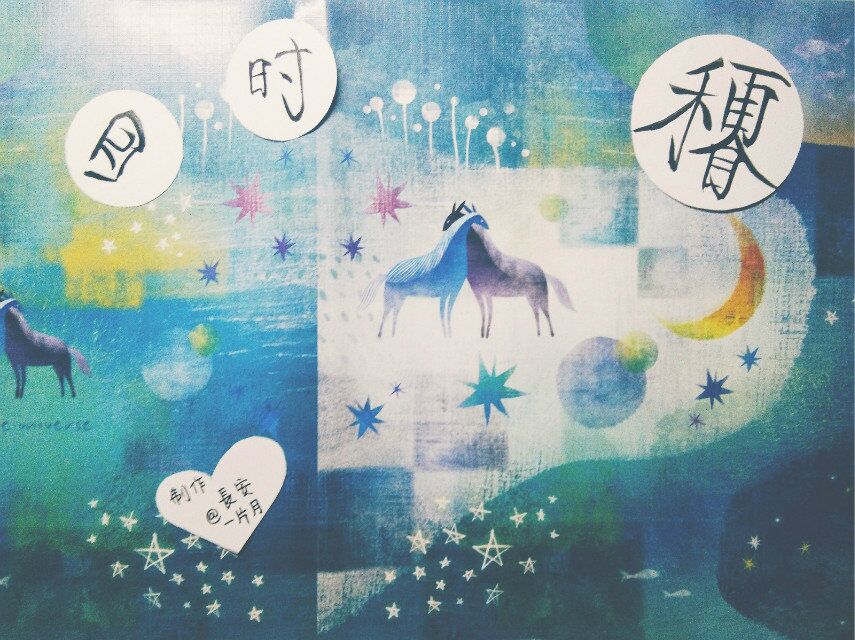 四
时
e universe
制作
@長安
一片月